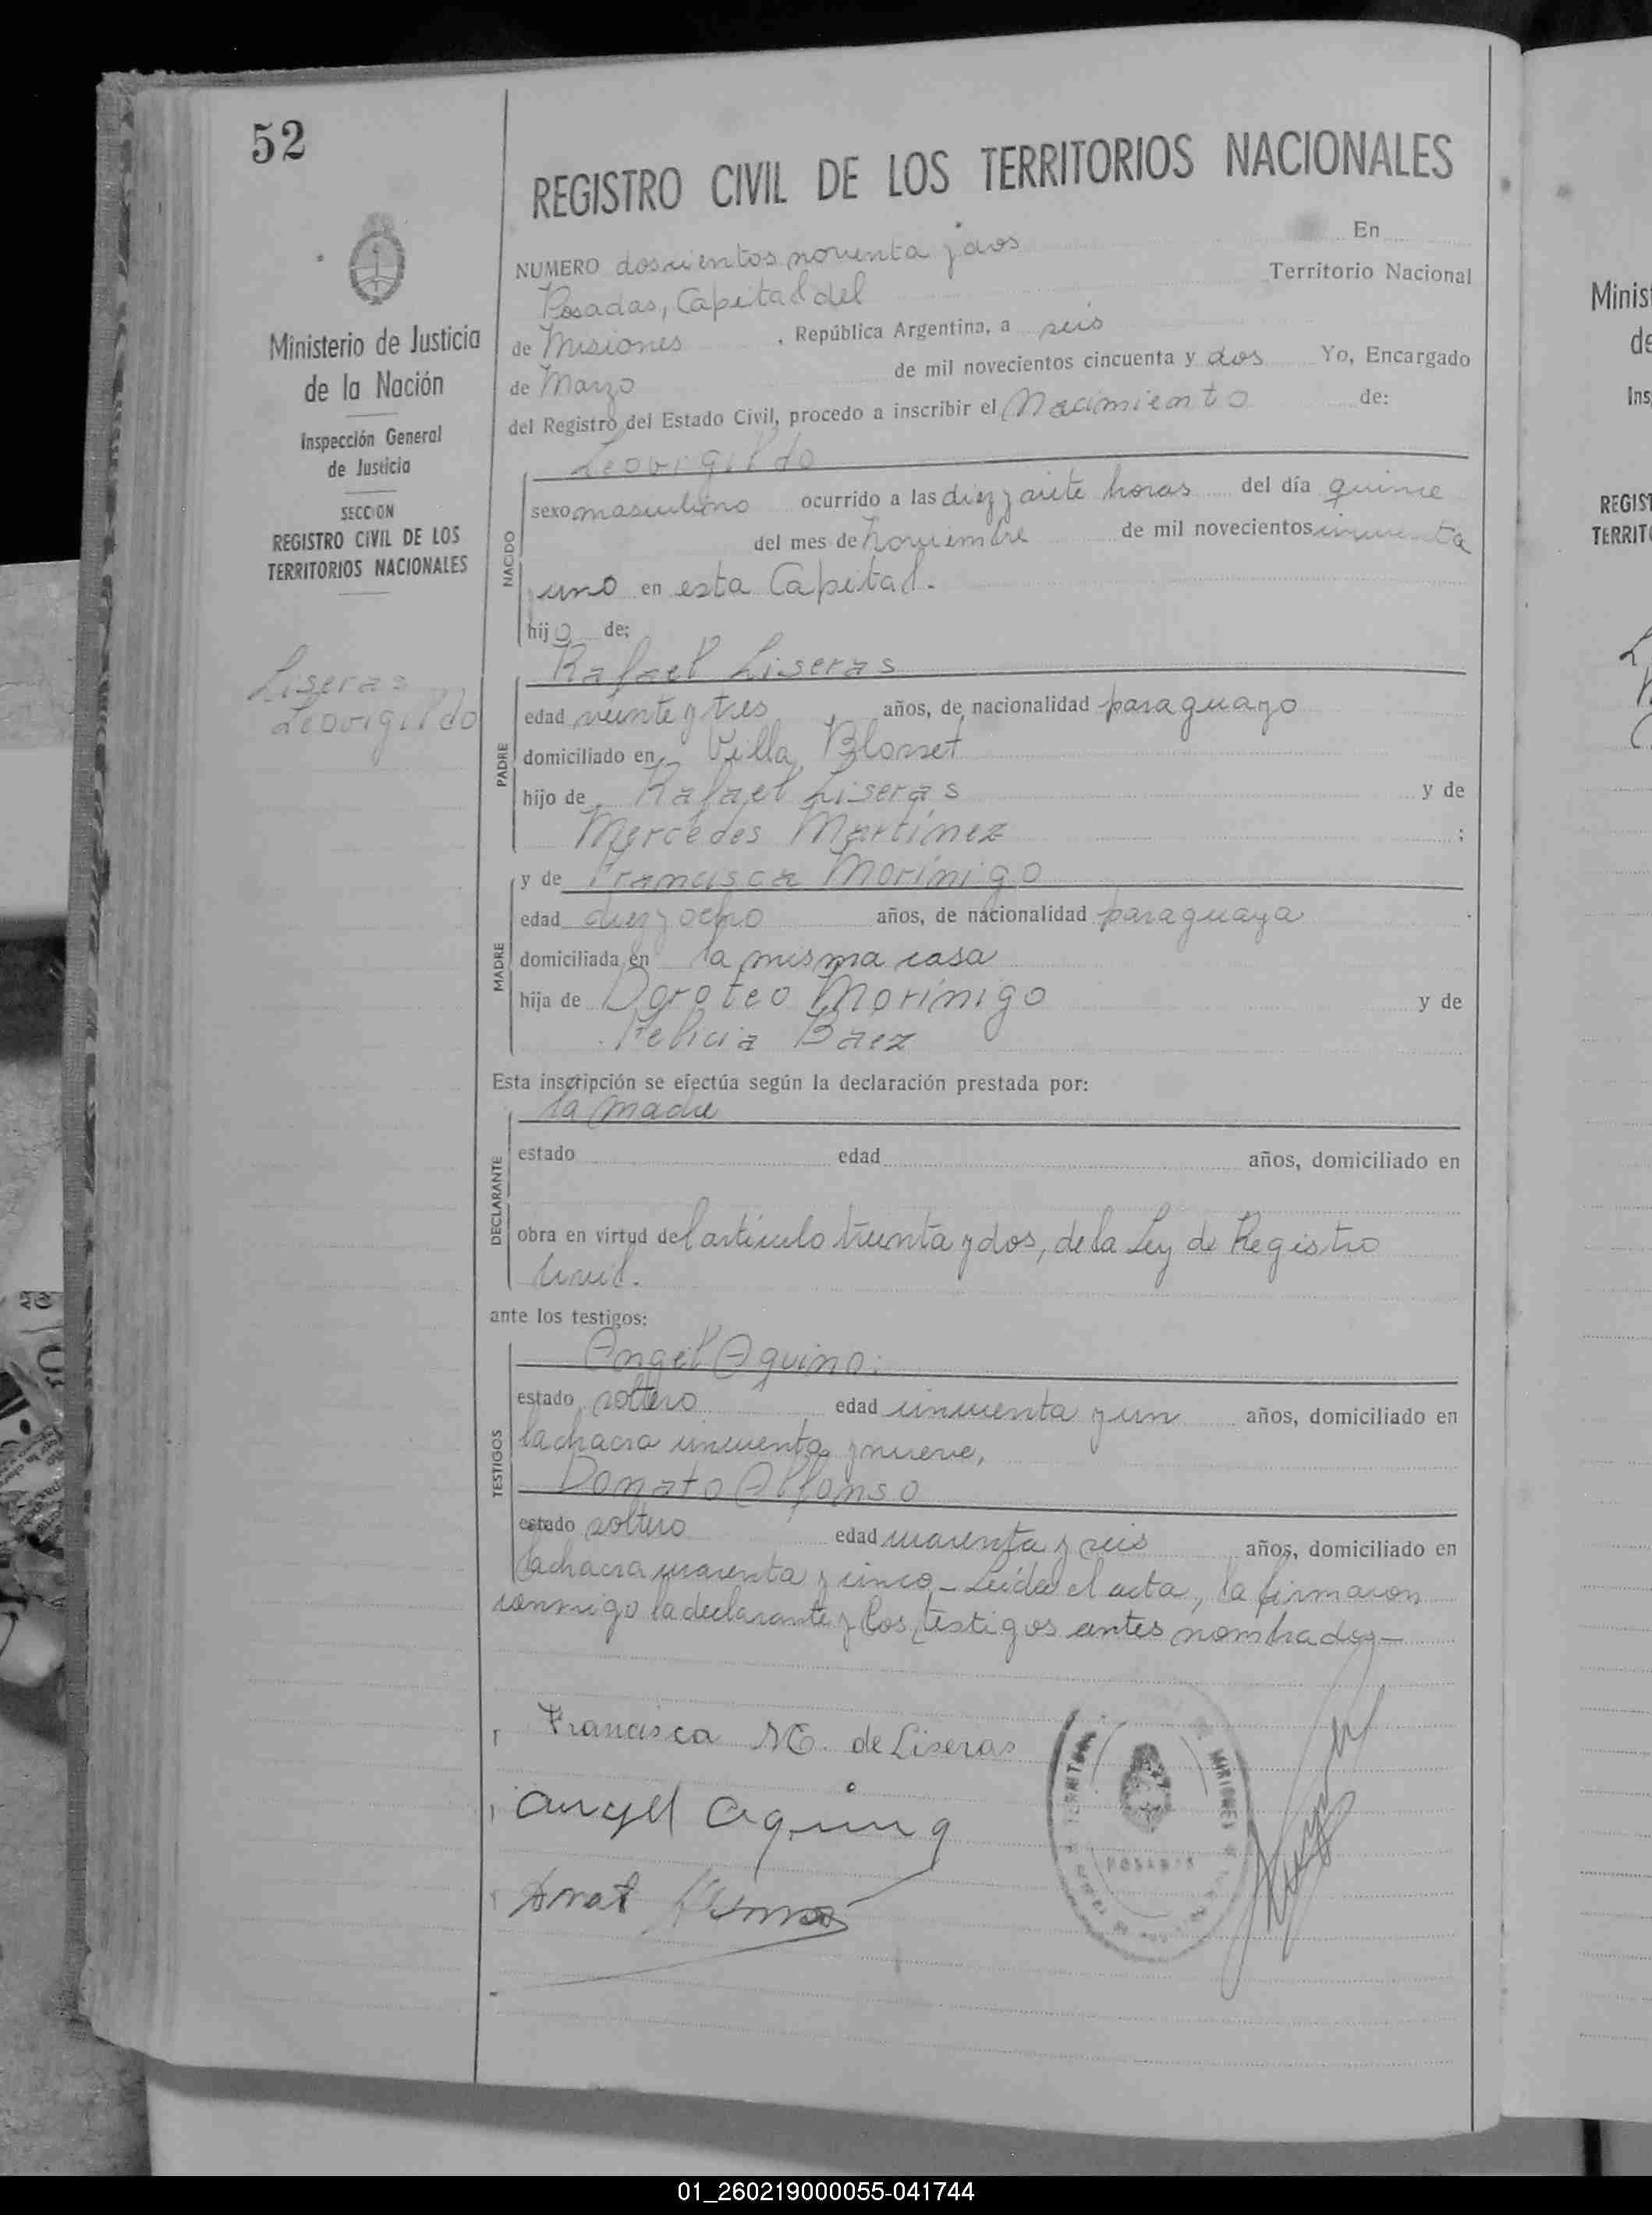 52
REGISTRO CIVIL DE LOS TERRITORIOS NACIONALES
Ministerio de Justicia
de la Nación
Inspección General
de Justicia
SECCION
REGISTRO CIVIL DE LOS
TERRITORIOS NACIONALES
Liseras
Leovigildo
NUMERO doscientos noventa y dos En
Posadas, Capital del Territorio Nacional
de Misiones, República Argentina, a seis
de Marzo de mil novecientos cincuenta y dos Yo, Encargado
del Registro del Estado Civil, procedo a inscribir el Nacimiento de:
Leovigildo
NACIDO
sexo masculino ocurrido a las diez y siete horas del día quince
del mes de Noviembre de mil novecientos cincuenta
uno en esta Capital.
hijo de:
Rafael Liseras
PADRE
edad veinte y tres años, de nacionalidad paraguayo
domiciliado en Villa Blosset
hijo de Rafael Liseras y de
Mercedes Martínez ;
y de Francisca Morínigo
MADRE
edad diez y ocho años, de nacionalidad paraguaya
domiciliada en la misma casa
hija de Doroteo Morínigo y de
Felicia Baez
Esta inscripción se efectúa según la declaración prestada por:
la madre
DECLARANTE
estado edad años, domiciliado en
obra en virtud del artículo treinta y dos, de la Ley de Registro
Civil.
ante los testigos:
Angel Aquino.
TESTIGOS
estado soltero edad cincuenta y un años, domiciliado en
la chacra cincuenta y nueve,
Donato Alfonso
estado soltero edad cuarenta y seis años, domiciliado en
la chacra cuarenta y cinco_ Leída el acta, la firmaron
conmigo la declarante y los testigos antes nombrados_
Francisca M. de Liseras
Angel Aquino
POSADAS
MISIONES
Minist
de
Ins
REGIST
TERRITO
01_260219000055-041744